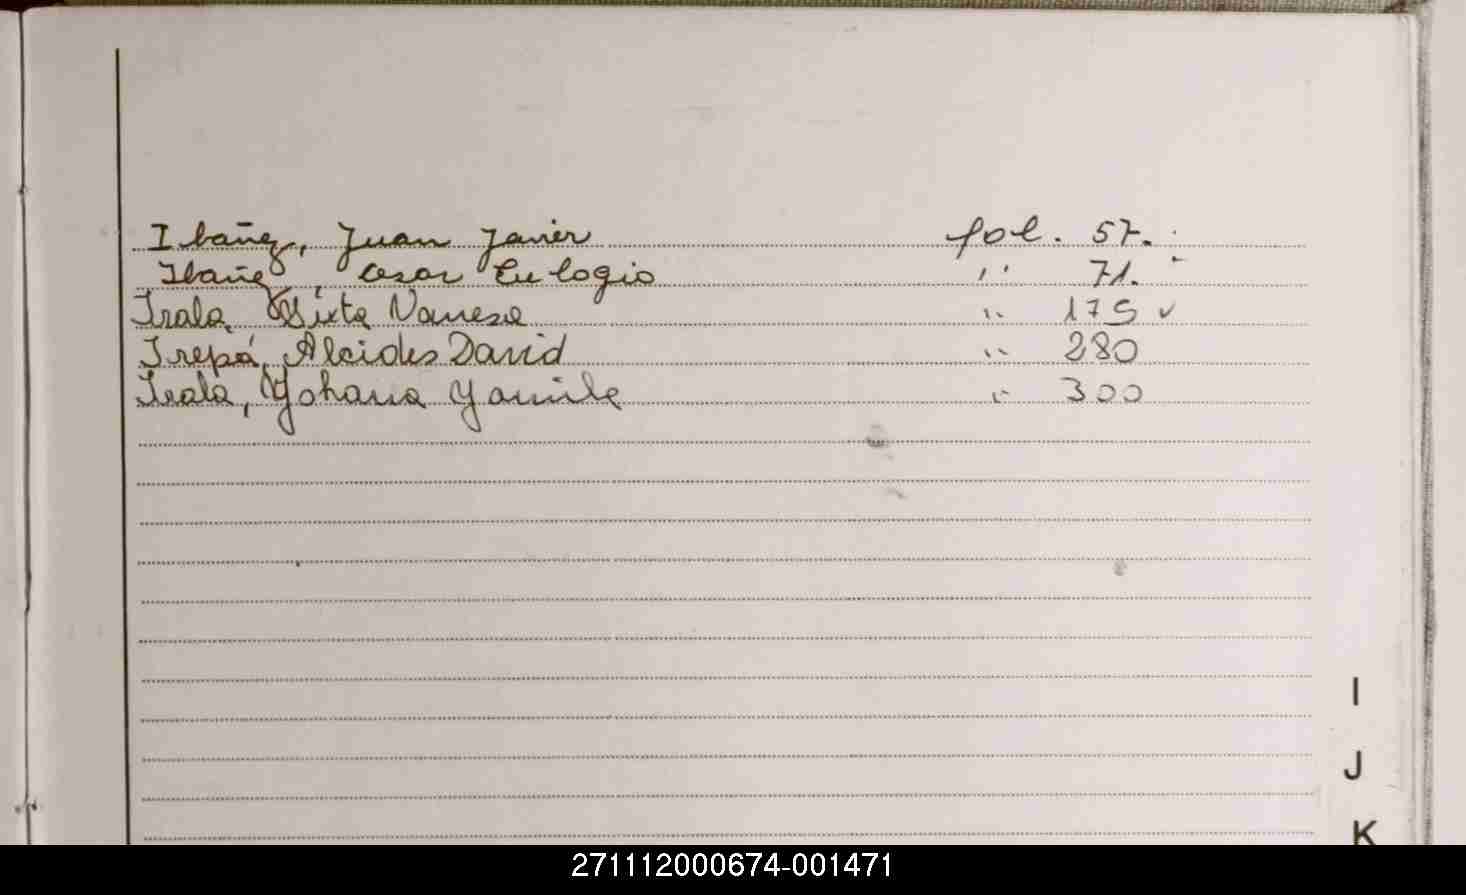 Ibañez, Juan Javier fol. 57.
Ibañez, Cesar Eulogio '' 71.
Irala, Sixta Vanesa '' 175 ✓
Irepá, Alcides David '' 280
Irala, Yohana Yamile '' 300
I
J
K
271112000674-001471